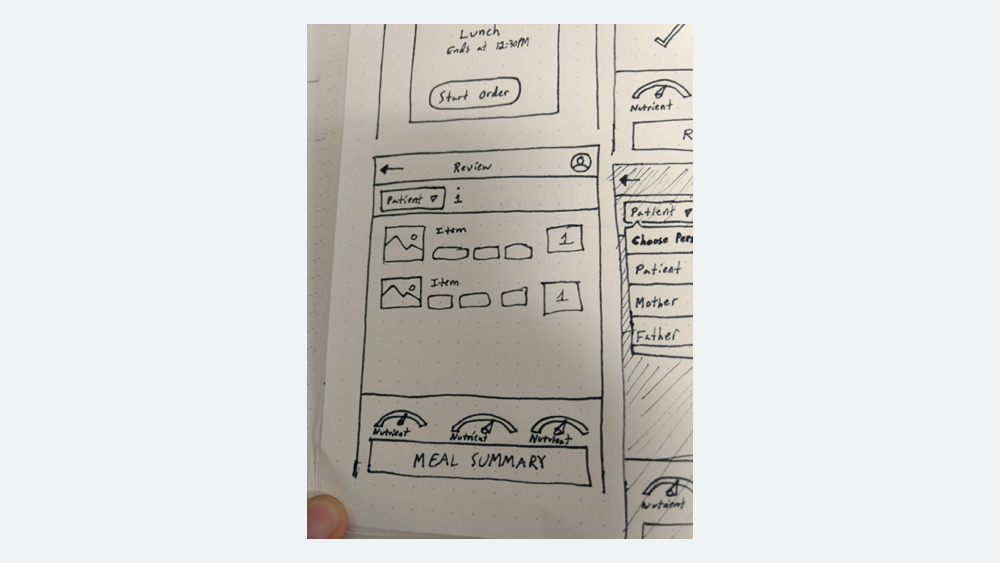 Lunch
Ends at 12:30PM
Start Order
Nutrient
R
← Review
Patient ▽ i
Item
1
Item
1
Nutrient Nutrient Nutrient
MEAL SUMMARY
←
Patient ▽
Choose Pers
Patient
Mother
Father
Nutrient